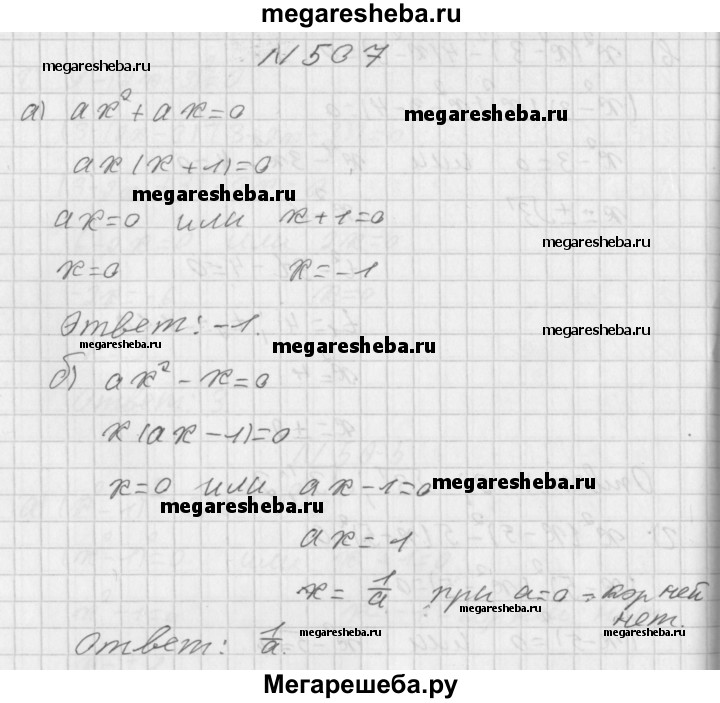 megaresheba.ru
N 507
megaresheba.ru
а) ax² + ax = 0
megaresheba.ru
ax(x + 1) = 0
megaresheba.ru
ax = 0 или x + 1 = 0
megaresheba.ru
x = 0 x = -1
Ответ: -1.
megaresheba.ru
megaresheba.ru
megaresheba.ru
б) ax² - x = 0
x(ax - 1) = 0
x = 0 или ax - 1 = 0
megaresheba.ru
megaresheba.ru
ax = 1
x = 1/a при a = 0 - корней нет.
megaresheba.ru
megaresheba.ru
megaresheba.ru
Ответ: 1/a.
Мегарешеба.ру